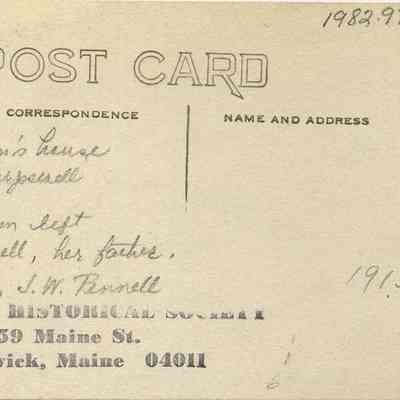 1982.9
POST CARD
CORRESPONDENCE
NAME AND ADDRESS
n's house
rpswell
n left
ell, her father.
, S. W. Pennell
191
HISTORICAL SOCIETY
59 Maine St.
wick, Maine 04011